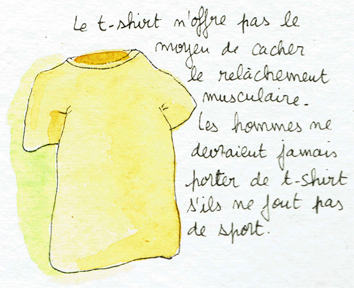 Le t-shirt n'offre pas le
moyen de cacher
le relâchement
musculaire.
Les hommes ne
devraient jamais
porter de t-shirt
s'ils ne font pas
de sport.